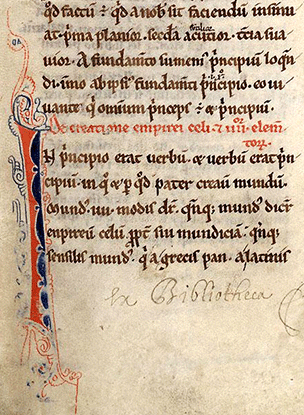 qđ factū ⁊ qđ a nob̄ sit faciendū insinu
at. p̄ma planior. sēda acutior. t̄cia sua
uior. A fundam̄to sumem᷒ p̄ncipiū loq̄n
di. īmo ab ipsi᷒ fundam̄ti p̄ncipio. eo iu
uante q̇ omniū p̄nceps ē ⁊ p̄ncipiū.
De creatiōe empirei celi ⁊ iiiior. elem̄
torꝝ.
IN p̄ncipio erat uerbū. ⁊ uerbū erat p̄n
cipiū. in q̊ ⁊ ꝑ qđ pater creauit mundū.
Mund᷒. iiii. modis dr̄. qn̄qꝫ mund᷒ dicit᷑
empireū celū ꝓpt̄ sui mundiciā. qn̄qꝫ
sensilis mund᷒. q̇ a grecis pan. a latinis
Ex Bibliotheca